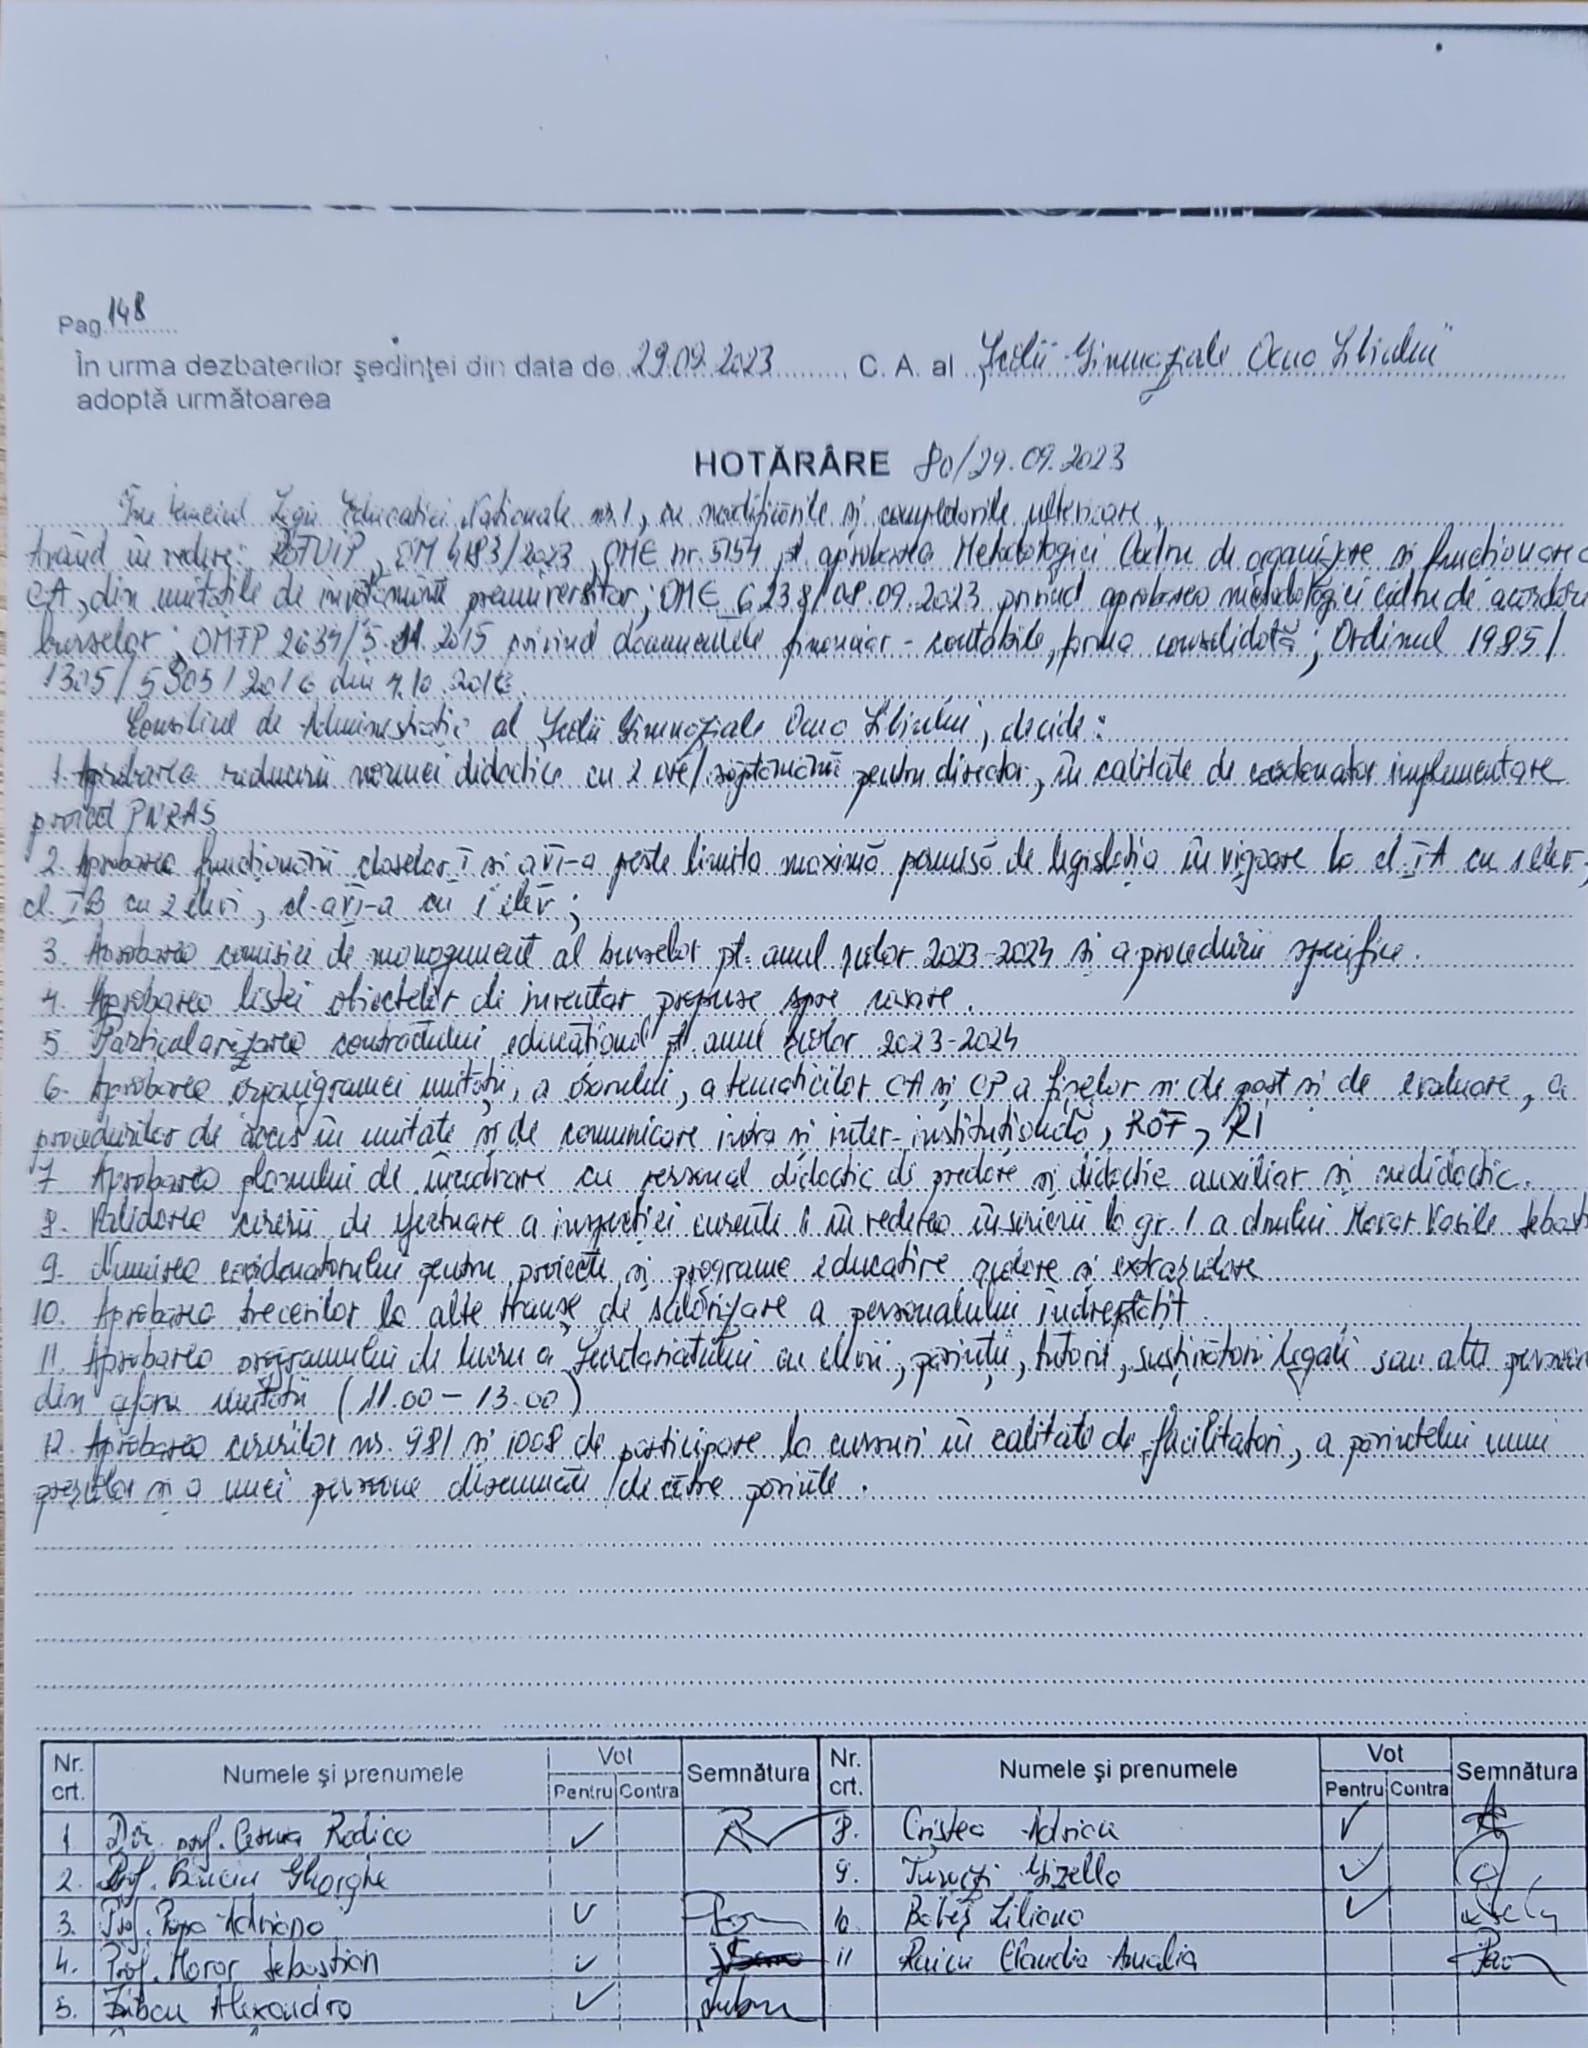 Pag. 148
În urma dezbaterilor şedinţei din data de 29.09.2023 C. A. al Școlii Gimnaziale Ocna Sibiului"
adoptă următoarea
HOTĂRÂRE 80/29.09.2023
În temeiul Legii Educatiei Nationale nr. 1, cu modificările si completările ulterioare,
Având în vedere: ROFUIP, OM 4183/2023, OME nr. 5154 pt aprobarea Metodologiei Cadru de organizare si functionare a
CA, din unitatile de învătământ preuniversitar; OME 6238/08.09.2023 privind aprobarea metodologiei cadru de acordare
burselor; OMFP 2634/5.11.2015 privind documentele financiar-contabile, forma consolidată; Ordinul 1985/
1305/5805/2016 din 4.10.2016.
Consiliul de Administratie al Școlii Gimnaziale Ocna Sibiului, decide:
1. Aprobarea reducerii normei didactice cu 2 ore/săptămână pentru director, în calitate de coordonator implementare
proiect PNRAS
2. Aprobarea functionării claselor I si a VI-a peste limita maximă permisă de legislatia în vigoare la cl. IA cu 1 elev,
cl. IB cu 2 elevi, cl. a VI-a cu 1 elev;
3. Aprobarea comisiei de management al burselor pt. anul școlar 2023-2024 si a procedurii specifice.
4. Aprobarea listei obiectelor de inventar propuse spre casare.
5. Particularizarea contractului educational pt anul școlar 2023-2024
6. Aprobarea organigramei unitătii, a orarului, a tematicilor CA si CP a fișelor si de post si de evaluare, a
procedurilor de acces în unitate si de comunicare intra si inter-institutională, ROF, RI
7. Aprobarea planului de încadrare cu personal didactic de predare si didactic auxiliar si nedidactic.
8. Validarea cererii de efectuare a inspecției curente 1 în vederea înscrierii la gr. 1 a dnului Moror Vasile Sebast
9. Numirea coordonatorului pentru proiecte si programe educative școlare si extrașcolare
10. Aprobarea trecerilor la alte tranșe de salarizare a personalului îndreptătit.
11. Aprobarea programului de lucru a Secretariatului cu elevii, părinții, tutorii, susținători legali sau alte persoane
din afara unitătii (11.00 - 13.00)
12. Aprobarea cererilor nr. 981 si 1008 de participare la cursuri în calitate de facilitatori, a părintelui unui
preșcolar si a unei persoane desemnate de către părinte.
Nr. crt. Numele şi prenumele Vot Pentru Contra Semnătura Nr. crt. Numele şi prenumele Vot Pentru Contra Semnătura
1 Dir. prof. Rodica ✓ 8. Cristea Adrian ✓
2. Prof. Gheorghe 9. Gizella ✓
3. Prof. Popa Adriana ✓ 10 Babeș Liliana ✓
4. Prof. Moror Sebastian ✓ 11 Raicu Claudia Amalia
5. Alexandra ✓